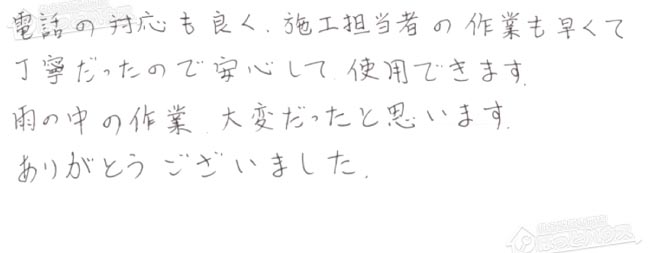 電話の対応も良く、施工担当者の作業も早くて
丁寧だったので安心して使用できます。
雨の中の作業、大変だったと思います。
ありがとうございました。